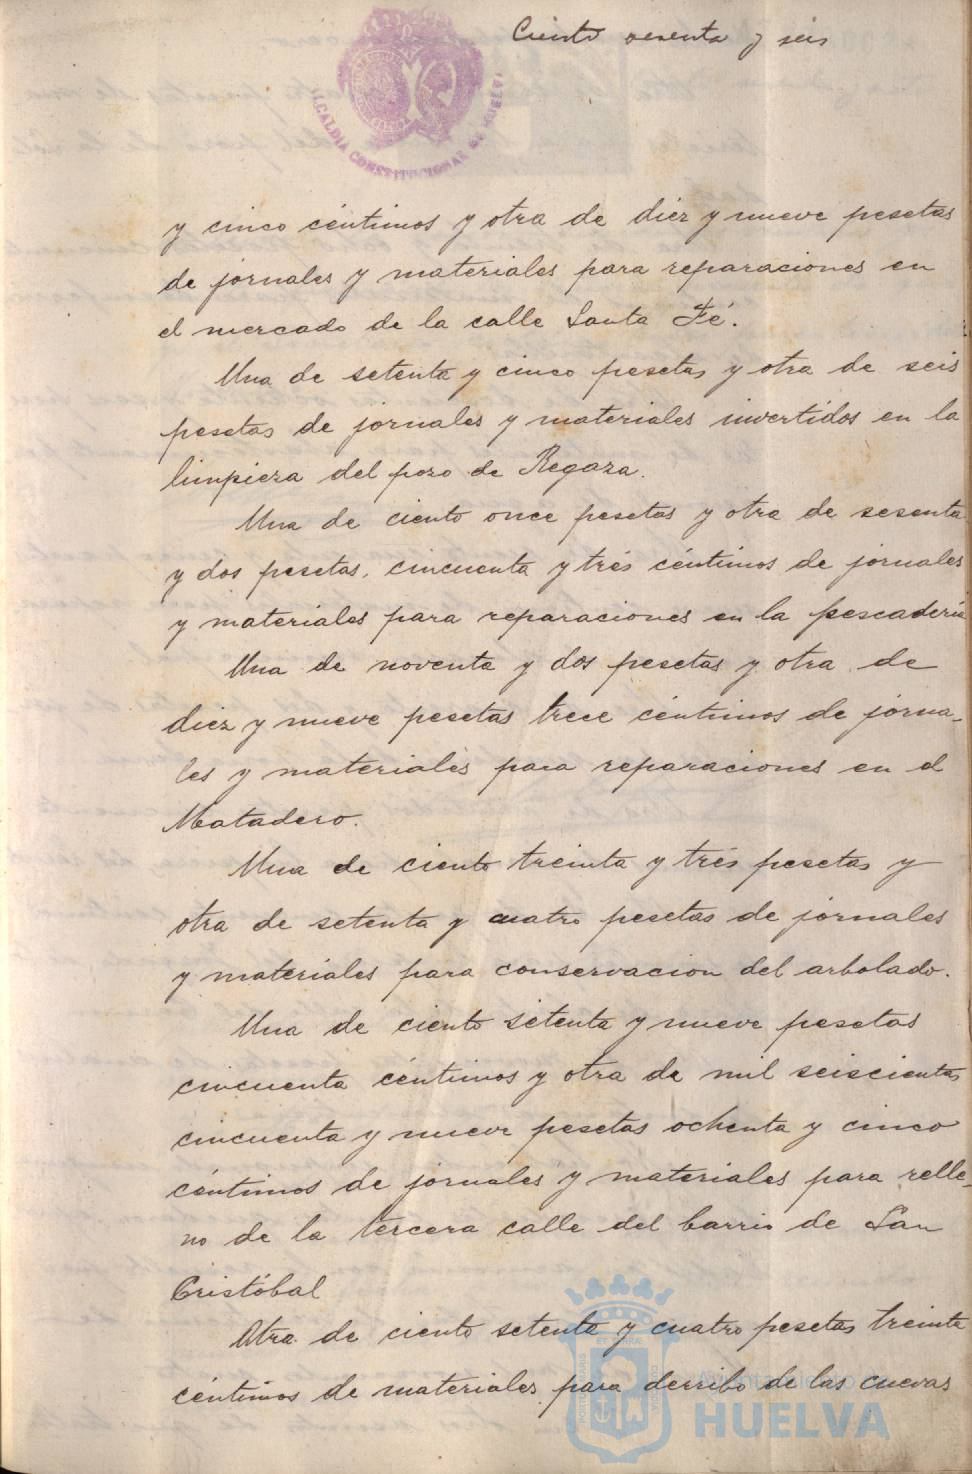 Ciento sesenta y seis
ALCALDIA CONSTITUCIONAL DE HUELVA
y cinco céntimos y otra de diez y nueve pesetas
de jornales y materiales para reparaciones en
el mercado de la calle Santa Fé.
Una de setenta y cinco pesetas y otra de seis
pesetas de jornales y materiales invertidos en la
limpieza del pozo de Regaza.
Una de ciento once pesetas y otra de sesenta
y dos pesetas, cincuenta y trés céntimos de jornales
y materiales para reparaciones en la pescadería
Una de noventa y dos pesetas y otra de
diez y nueve pesetas trece céntimos de jorna-
les y materiales para reparaciones en el
Matadero.
Una de ciento treinta y trés pesetas y
otra de setenta y cuatro pesetas de jornales
y materiales para conservacion del arbolado.
Una de ciento setenta y nueve pesetas
cincuenta céntimos y otra de mil seiscientas
cincuenta y nueve pesetas ochenta y cinco
céntimos de jornales y materiales para relle-
no de la tercera calle del barrio de San
Cristóbal
Otra de ciento setenta y cuatro pesetas treinta
céntimos de materiales para derribo de las cuevas
Ayuntamiento de
HUELVA